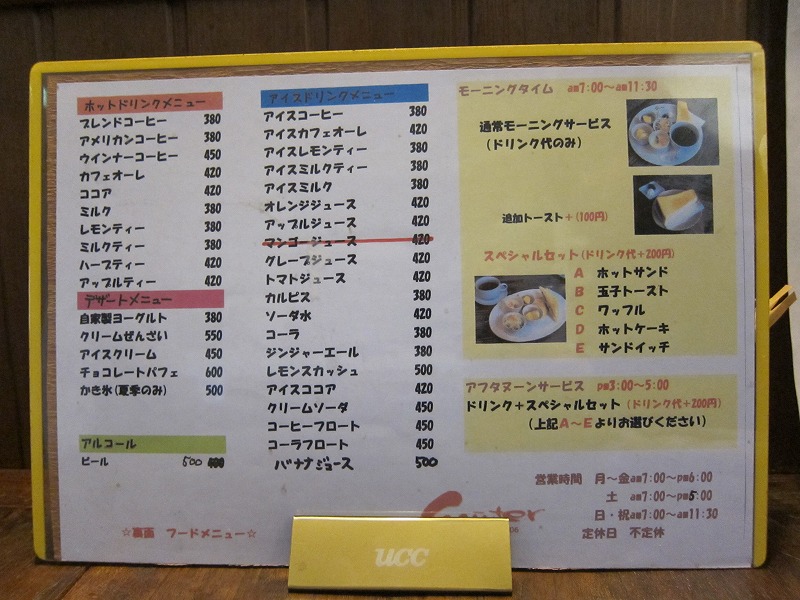 ホットドリンクメニュー
ブレンドコーヒー 380
アメリカンコーヒー 380
ウインナーコーヒー 450
カフェオーレ 420
ココア 420
ミルク 380
レモンティー 380
ミルクティー 380
ハーブティー 420
アップルティー 420
デザートメニュー
自家製ヨーグルト 380
クリームぜんざい 550
アイスクリーム 450
チョコレートパフェ 600
かき氷(夏季のみ) 500
アルコール
ビール 500
☆裏面 フードメニュー☆
アイスドリンクメニュー
アイスコーヒー 380
アイスカフェオーレ 420
アイスレモンティー 380
アイスミルクティー 380
アイスミルク 380
オレンジジュース 420
アップルジュース 420
マンゴージュース 420
グレープジュース 420
トマトジュース 420
カルピス 380
ソーダ水 420
コーラ 380
ジンジャーエール 380
レモンスカッシュ 500
アイスココア 420
クリームソーダ 450
コーヒーフロート 450
コーラフロート 450
バナナジュース 500
モーニングタイム am7:00～am11:30
通常モーニングサービス
(ドリンク代のみ)
追加トースト+(100円)
スペシャルセット(ドリンク代+200円)
A ホットサンド
B 玉子トースト
C ワッフル
D ホットケーキ
E サンドイッチ
アフタヌーンサービス pm3:00～5:00
ドリンク+スペシャルセット (ドリンク代+200円)
(上記A～Eよりお選びください)
営業時間 月～金am7:00～pm6:00
土 am7:00～pm5:00
日・祝am7:00～am11:30
定休日 不定休
ucc